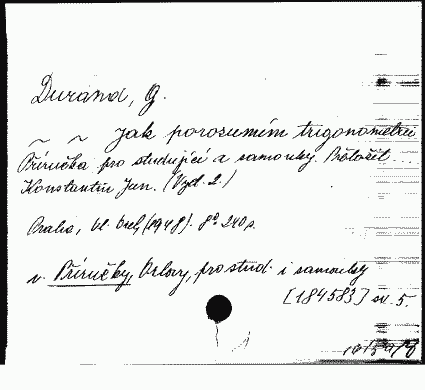 Durand, G.
~ ~ Jak porozumím trigonometrii
Příručka pro studující a samouky. Přeložil
Konstantin Jun. (Vyd. 2.)
Praha, Vl. Orel, (1948). 8° 240 s.
v. Příručky, Orlovy, pro stud. i samouky
[184583] sv. 5.